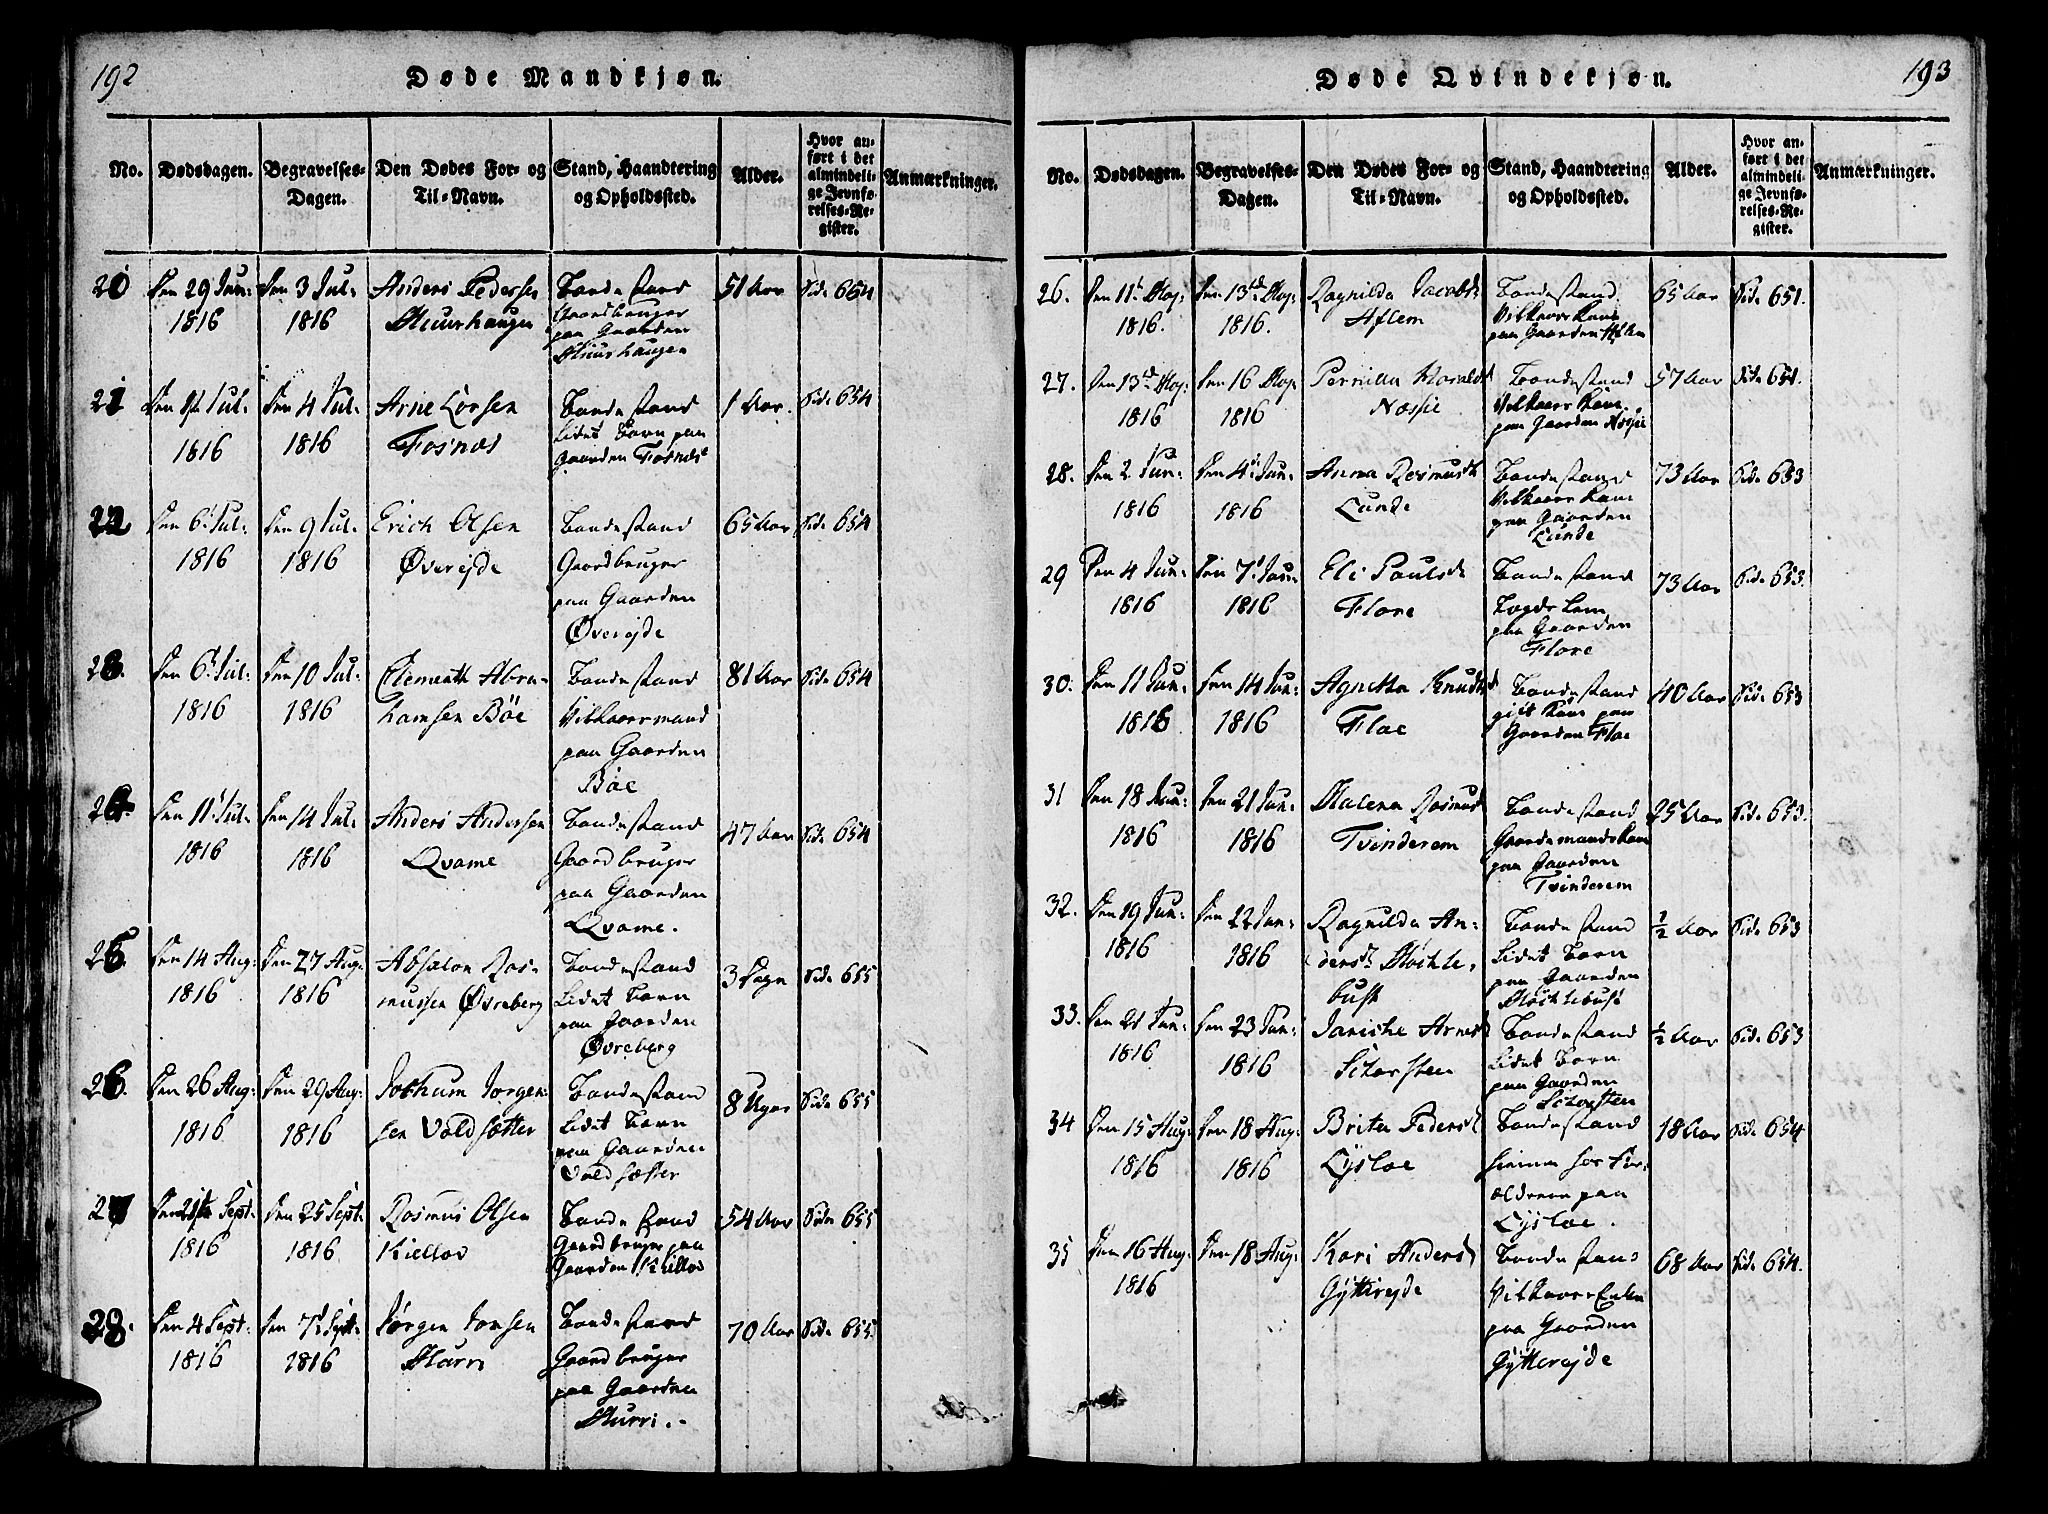 192
Døde Mandkjøn.
No.
Dødsdagen.
Begravelses-
Dagen.
Den Dødes For- og
Til-Navn.
Stand, Haandtering
og Opholdssted.
Alder.
Hvor an-
ført i det
almindeli-
ge Jevnfø-
relses-Re-
gister.
Anmærkninger.
20
Den 29 Jun:
1816
Den 3 Jul:
1816
Anders Pedersen
Bondestand
Gaardbruger
paa Gaarden
51 Aar
Side 654
21
Jul:
1816
Den 4 Jul:
1816
Arne Larsen
Fosnæs
Bondestand
Lidet Barn paa
Gaarden Fosnæs
1 Aar.
Side 654
22
Den 6t Jul:
1816
Den 9 Jul:
1816
Erich Olsen
Øverejde
Bondestand
Gaardbruger
paa Gaarden
Øverejde
65 Aar
Side 654
23.
Den 6t Jul:
1816
Den 10 Jul:
1816
Clementh Abra-
hamsen Böe
Bondestand
Vilkaarsmand
paa Gaarden
Böe
81 Aar
Side 654
24.
Den 11t Jul:
1816
Den 14 Jul:
1816
Anders Andersen
Qvame
Bondestand
Gaardbruger
paa Gaarden
Qvame.
47 Aar
Side 654
25.
Den 14 Aug:
1816
Den 27 Aug:
1816
Absalon Ras-
mussen Øvreberg
Bondestand
Lidet Barn
paa Gaarden
Øvreberg
3 Dage
Side 655
26.
Den 26 Aug:
1816
Den 29 Aug:
1816
Jochum Jørgen-
sen Voldsætter
Bondestand
Lidet Barn
paa Gaarden
Voldsætter
8 Uger
Side 655
27
Den 21 Sept:
1816
Den 25 Sept:
1816
Rasmus Olsen
Kiellov
Bondestand
Gaardbruger paa
Gaarden Kiellov
54 Aar
Side 655
28.
Den 4 Sept:
1816
Den 7t Sept:
1816
Jørgen Jonsen
Hurri
Bondestand
Gaardbruger
paa Gaarden
Hurri.
70 Aar
Side 655.
193
Døde Qvindekjøn.
No.
Dødsdagen.
Begravelses-
Dagen.
Den Dødes For- og
Til-Navn.
Stand, Haandtering
og Opholdssted.
Alder.
Hvor an-
ført i det
almindeli-
ge Jevnfø-
relses-Re-
gister.
Anmærkninger.
26.
Den 11t Maj:
1816.
Den 13de Maj:
1816.
Ragnilda Jacobsd:
Aflem
Bondestand
Vilkaars Kone
paa Gaarden Aflem
65 Aar
Side 651.
27.
Den 13de Maj:
1816
Den 16 Maj:
1816
Pernilla
Næssie
Bondestand
Vilkaars Kone
paa Gaarden Næssie
57 Aar
Side 651.
28.
Den 2 Jun:
1816
Den 4t Jun:
1816
Anna Rasmusd:
Lunde
Bondestand
Vilkaars Kone
paa Gaarden
Lunde
73 Aar
Side 653
29
Den 4 Jun:
1816
Den 7t Jun:
1816
Eli Paulsd
Flore
Bondestand
Lægds Lem
paa Gaarden
Flore
73 Aar
Side 653.
30.
Den 11 Jun:
1816
Den 14 Jun:
1816
Agnetha Knudsd
Floe
Bondestand
gift Kone paa
Gaarden Floe
40 Aar
Side 653
31
Den 18 Jun:
1816
Den 21 Jun:
1816
Malena Rasmusd
Tvinderem
Bondestand
Gaardmands Kone
paa Gaarden
Tvinderem
25 Aar
Side 653.
32.
Den 19 Jun:
1816
Den 22 Jun:
1816
Ragnilda An-
dersd:
bust
Bondestand
Lidet Barn
paa Gaarden
1/2 Aar
Side 653
33.
Den 21 Jun:
1816
Den 23 Jun:
1816
Janicke Arnesd
Storsten
Bondestand
Lidet Barn
paa Gaarden
Storsten
1/2 Aar
Side 653
34
Den 15 Aug:
1816
Den 18 Aug:
1816
Brita Pedersd
Lysloe
Bondestand
hiemme hos For-
ældrene paa
Lysloe.
18 Aar
Side 654
35
Den 16 Aug:
1816
Den 18 Aug:
Kari Andersd
Gytterejde
Bondestan-
Vilkaars Enke
paa Gaarden
Gytterejde
68 Aar
Side 654.